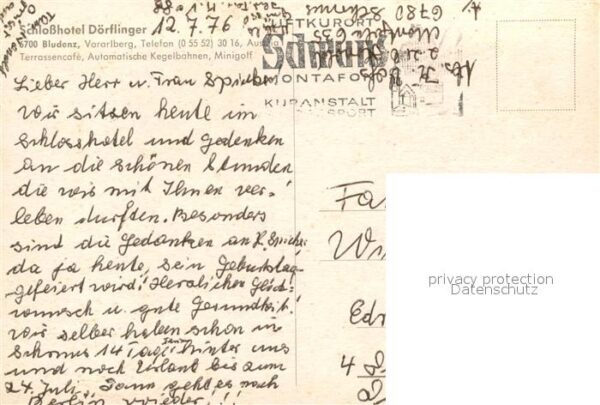 Schloßhotel Dörflinger
6700 Bludenz, Vorarlberg, Telefon (0 55 52) 30 16,
Terrassencafé, Automatische Kegelbahnen, Minigolf
12.7.76
LUFTKURORT
Schruns
MONTAFON
KURANSTALT
SPORT
Lieber Herr u. Frau
Wir sitzen heute im
Schlosshotel und gedenken
an die schönen Stunden
die wir mit Ihnen ver-
leben durften. Besonders
sind die Gedanken an H.
da ja heute, sein Geburtstag
gefeiert wird! Herzlichen Glück-
wunsch u. gute Gesundheit!
Wir selber haben schon in
Schruns 14 Tage hinter uns
und noch Urlaub bis zum
24. Juli. Dann geht es nach
Berlin wieder!!!
Fa
privacy protection
Datenschutz
Ed
4